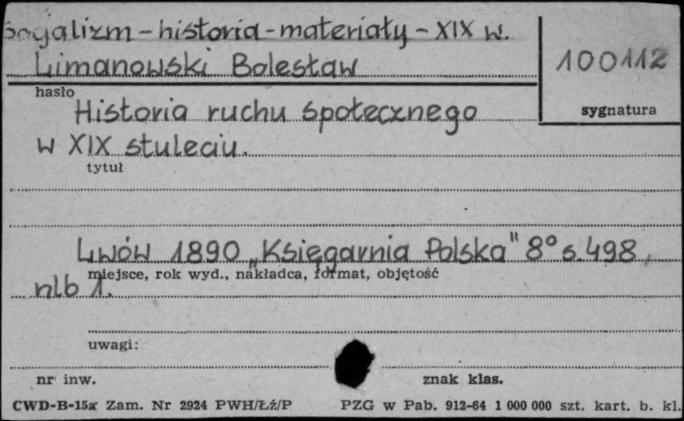 Socjalizm - historia - materiały - XIX w.
Limanowski Bolesław
100112
hasło
sygnatura
Historia ruchu społecznego
w XIX stuleciu.
tytuł
Lwów 1890 „Księgarnia Polska" 8° s. 498,
miejsce, rok wyd., nakładca, format, objętość
nlb 1.
uwagi:
nr inw.
znak klas.
CWD-B-15a Zam. Nr 2924 PWH/Łź/P PZG w Pab. 912-64 1 000 000 szt. kart. b. kl.